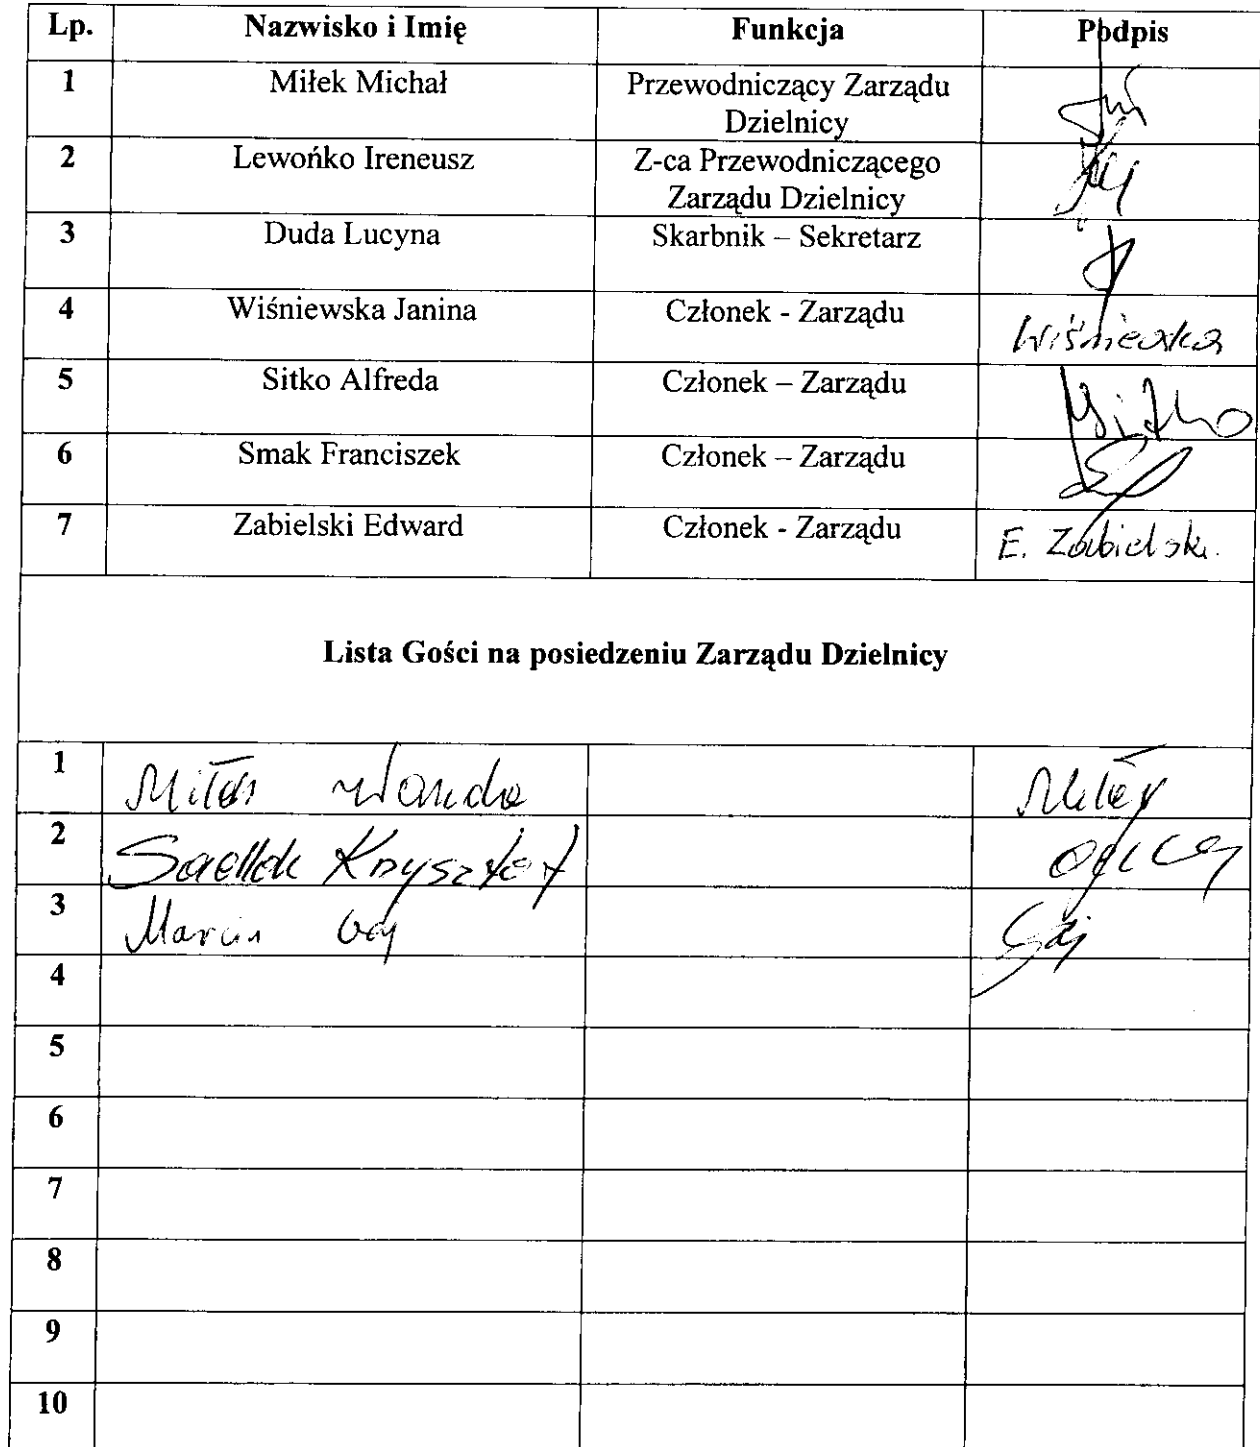 Lp. Nazwisko i Imię Funkcja Podpis
1 Miłek Michał Przewodniczący Zarządu
Dzielnicy
2 Lewońko Ireneusz Z-ca Przewodniczącego
Zarządu Dzielnicy
3 Duda Lucyna Skarbnik – Sekretarz
4 Wiśniewska Janina Członek - Zarządu Wiśniewska
5 Sitko Alfreda Członek – Zarządu Sitko
6 Smak Franciszek Członek – Zarządu
7 Zabielski Edward Członek - Zarządu E. Zabielski.
Lista Gości na posiedzeniu Zarządu Dzielnicy
1 Wanda
2 Krzysztof
3 Marcin Gaj Gaj
4
5
6
7
8
9
10